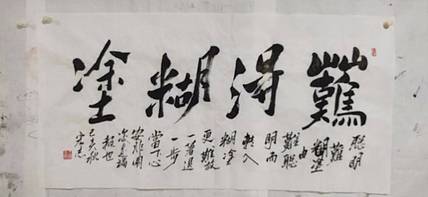 難得糊塗
聰明
難
糊塗
難
由聰
明而
轉入
糊塗
更難放
一著退
一步
當下心
安非圖
後來福
報也
己亥秋